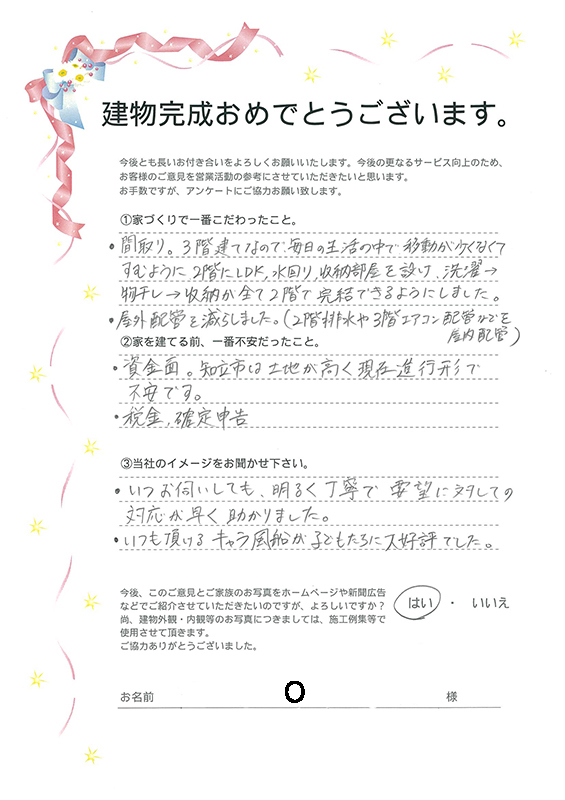 建物完成おめでとうございます。
今後とも長いお付き合いをよろしくお願いいたします。今後の更なるサービス向上のため、
お客様のご意見を営業活動の参考にさせていただきたいと思います。
お手数ですが、アンケートにご協力お願い致します。
①家づくりで一番こだわったこと。
・間取り。3階建てなので毎日の生活の中で移動が少なくなくて
すむように2階にLDK,水回り,収納部屋を設け,洗濯→
物干し→収納が全て2階で完結できるようにしました。
・屋外配管を減らしました。(2階排水や3階エアコン配管などを
屋内配管)
②家を建てる前、一番不安だったこと。
・資金面。知立市は土地が高く現在進行形で
不安です。
・税金,確定申告
③当社のイメージをお聞かせ下さい。
・いつお伺いしても、明るく丁寧で要望に対しての
対応が早く助かりました。
・いつも頂けるキャラ風船が子どもたちに大好評でした。
今後、このご意見とご家族のお写真をホームページや新聞広告
などでご紹介させていただきたいのですが、よろしいですか？
はい ・ いいえ
尚、建物外観・内観等のお写真につきましては、施工例集等で
使用させて頂きます。
ご協力ありがとうございました。
お名前 O 様